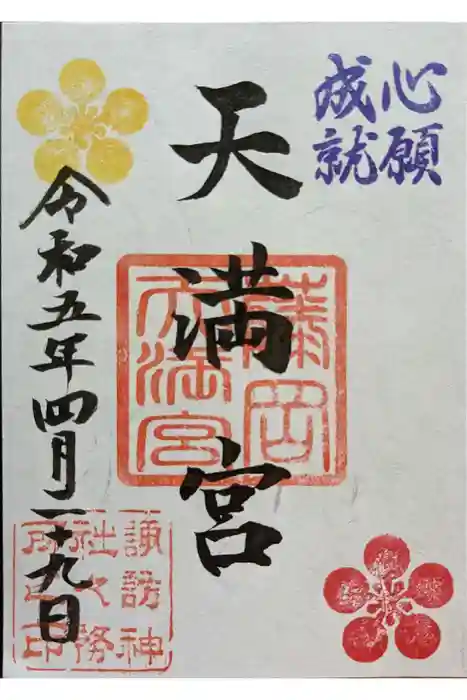 心願
成就
天満宮
藤岡
天満宮
令和五年四月二十九日
諏訪神
社之務
所印